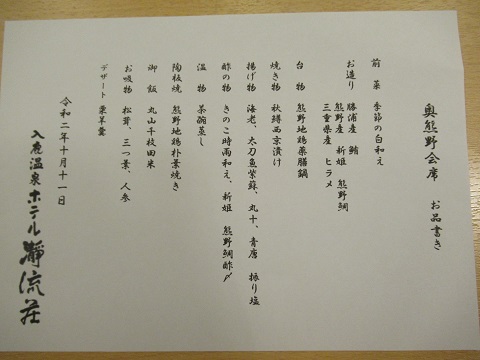 奥熊野会席　お品書き
前菜　季節の白和え
お造り　勝浦産　鮪
熊野産　新姫　熊野鯛
三重県産　ヒラメ
台物　熊野地鶏薬膳鍋
焼き物　秋鱒西京漬け
揚げ物　海老、太刀魚紫蘇、丸十、青唐　振り塩
酢の物　きのこ時雨和え、新姫　熊野鯛酢〆
温物　茶碗蒸し
陶板焼　熊野地鶏朴葉焼き
御飯　丸山千枚田米
お吸物　松茸、三つ葉、人参
デザート　栗羊羹
令和二年十月十一日
入鹿温泉ホテル瀞流荘